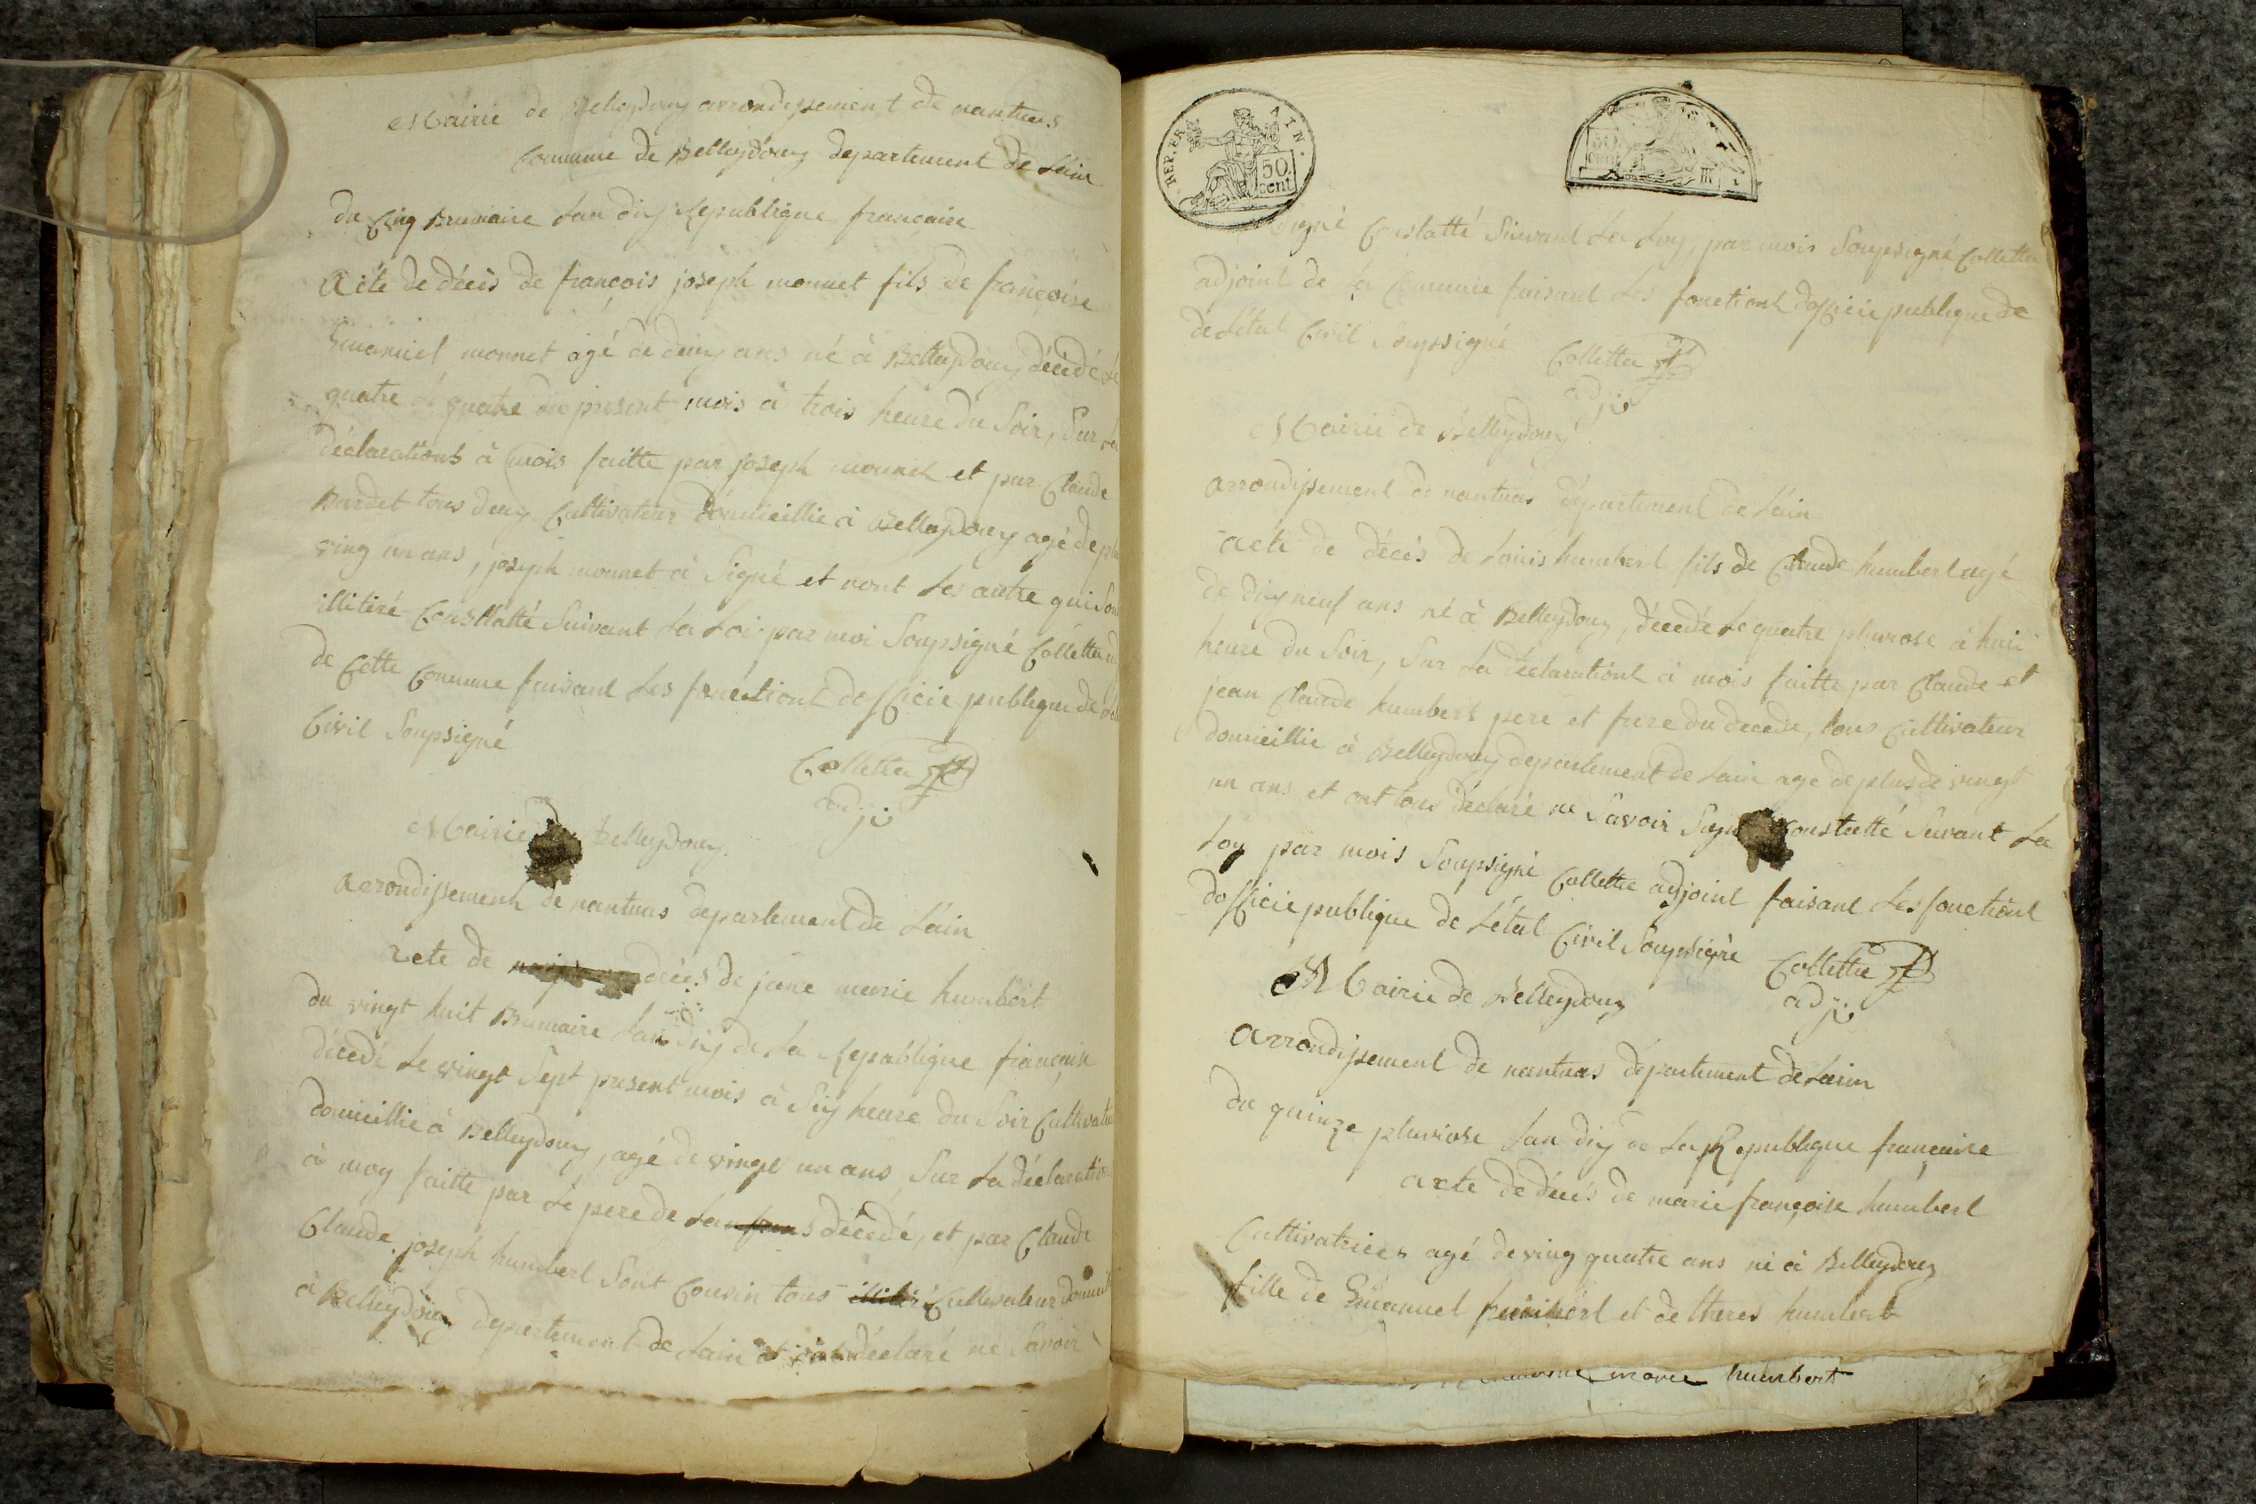 Mairie de Belleydoux arrondissement de nantuas
Commune de Belleydoux departement de Lain
du Cinq Brumaire Lan dix Republique francaise
Acte de décès de françois joseph monnet fils de françoise
Emanuel monnet agé de deux ans né à Belleydoux, décédé Le
quatre du present mois à trois heure du Soir, Sur La
déclarations à mois faitte par joseph monnet et par Claude
Burdet tous deux Cultivateur domicillie à Belleydoux agé de plu
ving un ans, joseph monnet à Signé et nont Les autre qui Sont
illitiré Constatté Suivant La Loi par moi Soupsigné Collettaz
de Cette Commune faisant Les fonctiont dofficie publique de
Civil Soupsigné
Collettaz
adj
Mairie Belleydoux
arrondissement de nantuas departement de Lain
acte de décès de jane marie humbert
du vingt huit Brumaire Lan dix de La Republique française
décédé Le vingt Sept present mois à Six heure du Soir Cultivat
domicillié à Belleydoux, agé de vingt un ans, Sur La déclaration
à moy faitte par Le pere de La décédé, et par Claude
Claude joseph humbert Sont Cousin tous illitiré Cultivateur domicil
à Belleydoux departement de Lain et ont déclaré ne Savoir
REP. FR. AIN.
50 cent
signé Constatté Suivant La Loy, par mois Soupsigné Collettaz
adjoint de La Commune faisant Les fonctiont dofficie publique de
de Létat Civil Soupsigné Collettaz
adj
Mairie de Belleydoux
arrondissement de nantuas département de Lain
acte de décès de Louis humbert fils de Claude humbert agé
de dix neuf ans né à Belleydoux, décédé Le quatre pluviose à huit
heure du Soir, Sur La déclarationt à mois faitte par Claude et
jean Claude humbert pere et frere du decede, tous Cultivateur
domicillie à Belleydoux departement de Lain agé de plus de vingt
un ans et ont tous déclaré ne Savoir Signé Constatté Suivant La
Loy par mois Soupsigné Collettaz adjoint faisant Les fonctiont
dofficie publique de Létat Civil Soupsigné Collettaz
adj
Mairie de Belleydoux
arrondissement de nantuas département de Lain
du quinze pluviose Lan dix de La Republique française
acte de décès de marie françoise humbert
Cultivatrice agé de ving quatre ans né à Belleydoux
fille de Emanuel humbert et de theres humbert
marie humbert